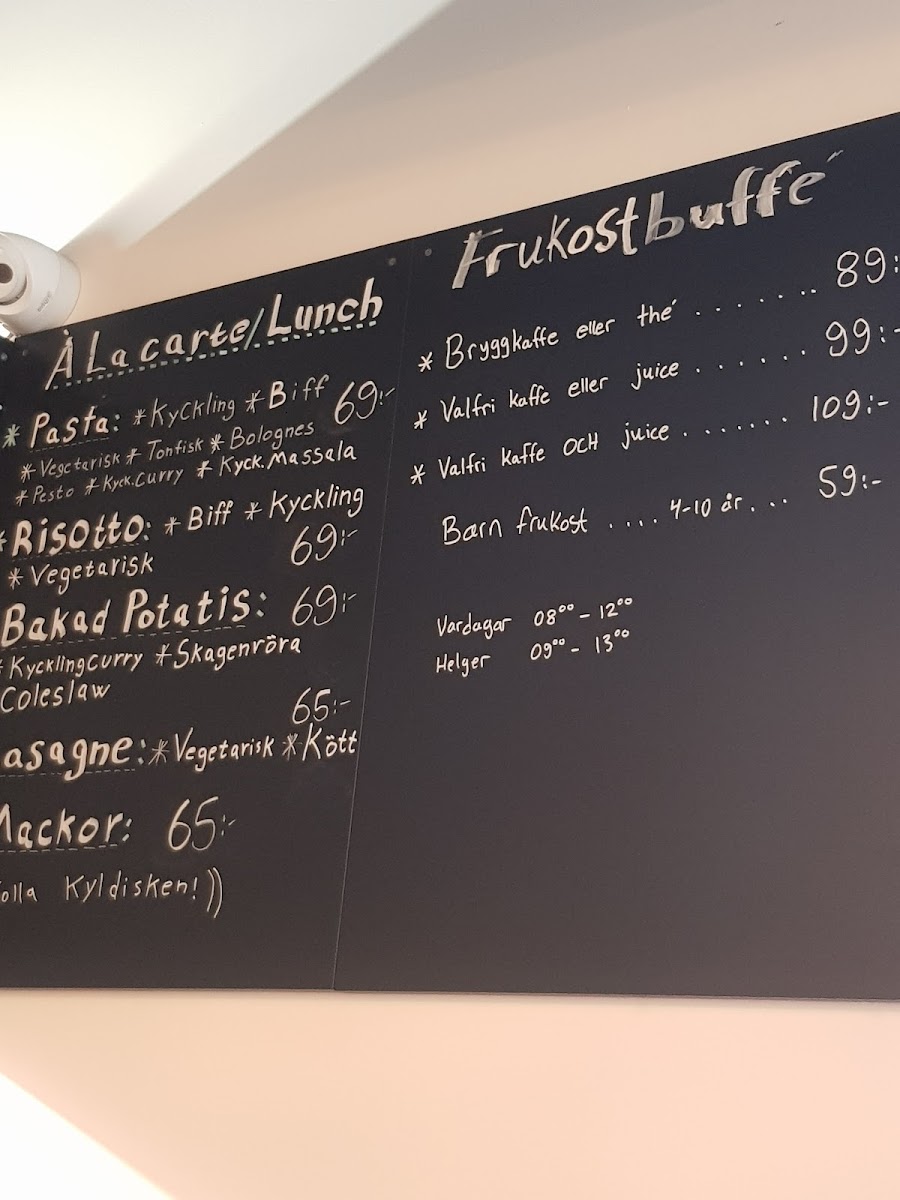 À La carte/Lunch
* Pasta: *Kyckling *Biff 69:-
*Vegetarisk * Tonfisk * Bolognes
*Pesto *Kyck.Curry * Kyck.Massala
*Risotto: * Biff * Kyckling
* Vegetarisk 69:-
Bakad Potatis: 69:-
* Kycklingcurry *Skagenröra
Coleslaw
65:-
asagne: *Vegetarisk *Kött
Mackor: 65:-
olla Kyldisken!))
Frukostbuffé
* Bryggkaffe eller thé ........ 89:
* Valfri kaffe eller juice ...... 99:-
* Valfri kaffe OCH juice ....... 109:-
Barn frukost .... 4-10 år... 59:-
Vardagar 08⁰⁰ - 12⁰⁰
Helger 09⁰⁰ - 13⁰⁰